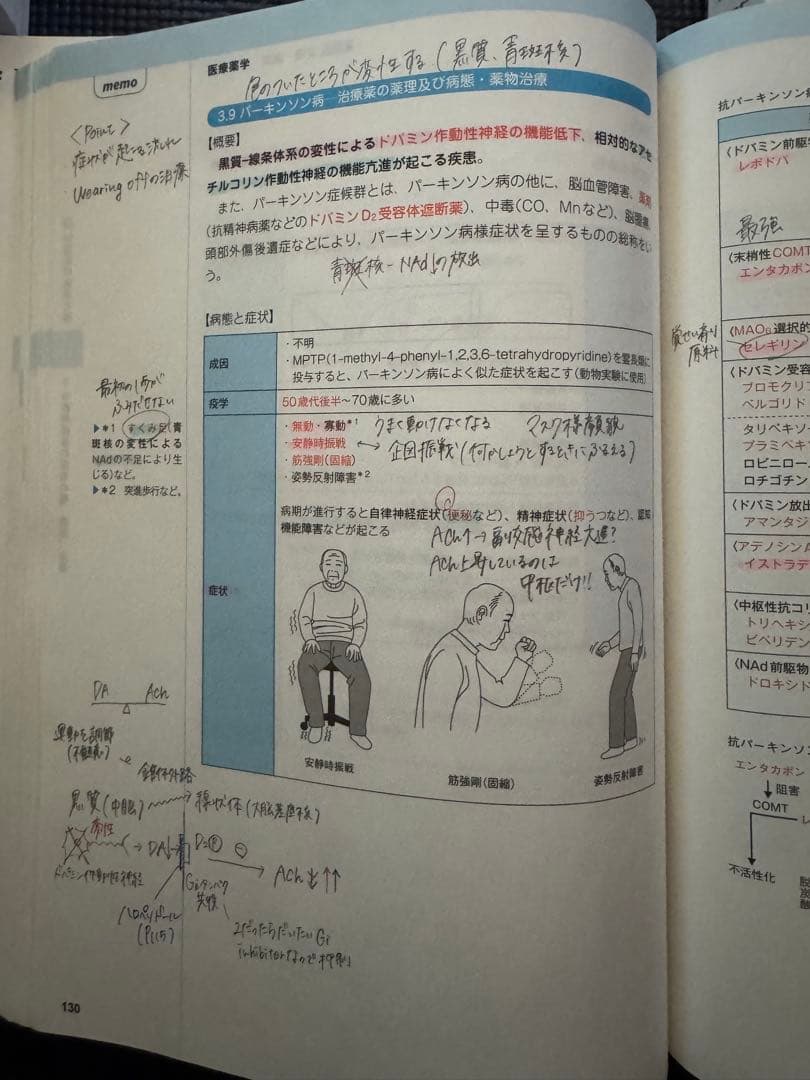 memo
医療薬学
色のついたところが変性する(黒質、青斑核)
3.9 パーキンソン病 治療薬の薬理及び病態・薬物治療
<Point>
症状が起こる流れ
・Wearing offの治療
【概要】
黒質-線条体系の変性によるドパミン作動性神経の機能低下、相対的なアセ
チルコリン作動性神経の機能亢進が起こる疾患。
また、パーキンソン症候群とは、パーキンソン病の他に、脳血管障害、薬剤
(抗精神病薬などのドパミンD₂受容体遮断薬)、中毒(CO、Mnなど)、脳腫瘍、
頭部外傷後遺症などにより、パーキンソン病様症状を呈するものの総称をい
う。
青斑核-NAd↓の放出
【病態と症状】
成因
・不明
・MPTP(1-methyl-4-phenyl-1,2,3,6-tetrahydropyridine)を霊長類に
投与すると、パーキンソン病によく似た症状を起こす(動物実験に使用)
疫学
50歳代後半〜70歳に多い
症状
・無動・寡動*¹ うまく動けなくなる マスク様顔貌
・安静時振戦 ↔ 企図振戦(何かしようとするときにふるえる)
・筋強剛(固縮)
・姿勢反射障害*²
病期が進行すると自律神経症状(便秘など)、精神症状(抑うつなど)、認知
機能障害などが起こる
ACh↑→副交感神経亢進?
ACh上昇しているのは
中枢だけ!!
安静時振戦
筋強剛(固縮)
姿勢反射障害
最初の1歩が
ふみだせない
▶*1 すくみ足(青
斑核の変性による
NAdの不足により生
じる)など。
▶*2 突進歩行など。
DA ACh
運動を調節
(不随意)
錐体外路
黒質(中脳) 線状体(大脳基底核)
変性
DA↓ D₂ ⊖
ACh ↑↑
ドパミン作動性神経
Giタンパク
共役
ハロペリドール
(P115)
2だったらだいたいGi
inhibitorなので抑制
130
抗パーキンソン病
〈ドパミン前駆物
レボドパ
最強
〈末梢性COMT
エンタカポン
覚せい剤
原料
〈MAO_B選択的
セレギリン
〈ドパミン受容
ブロモクリプ
ペルゴリド
タリペキソー
プラミペキ
ロピニロー
ロチゴチン
〈ドパミン放出
アマンタジ
〈アデノシンA
イストラデ
〈中枢性抗コリ
トリヘキシ
ビペリデン
〈NAd前駆物
ドロキシド
抗パーキンソン
エンタカポン
阻害
COMT
不活性化